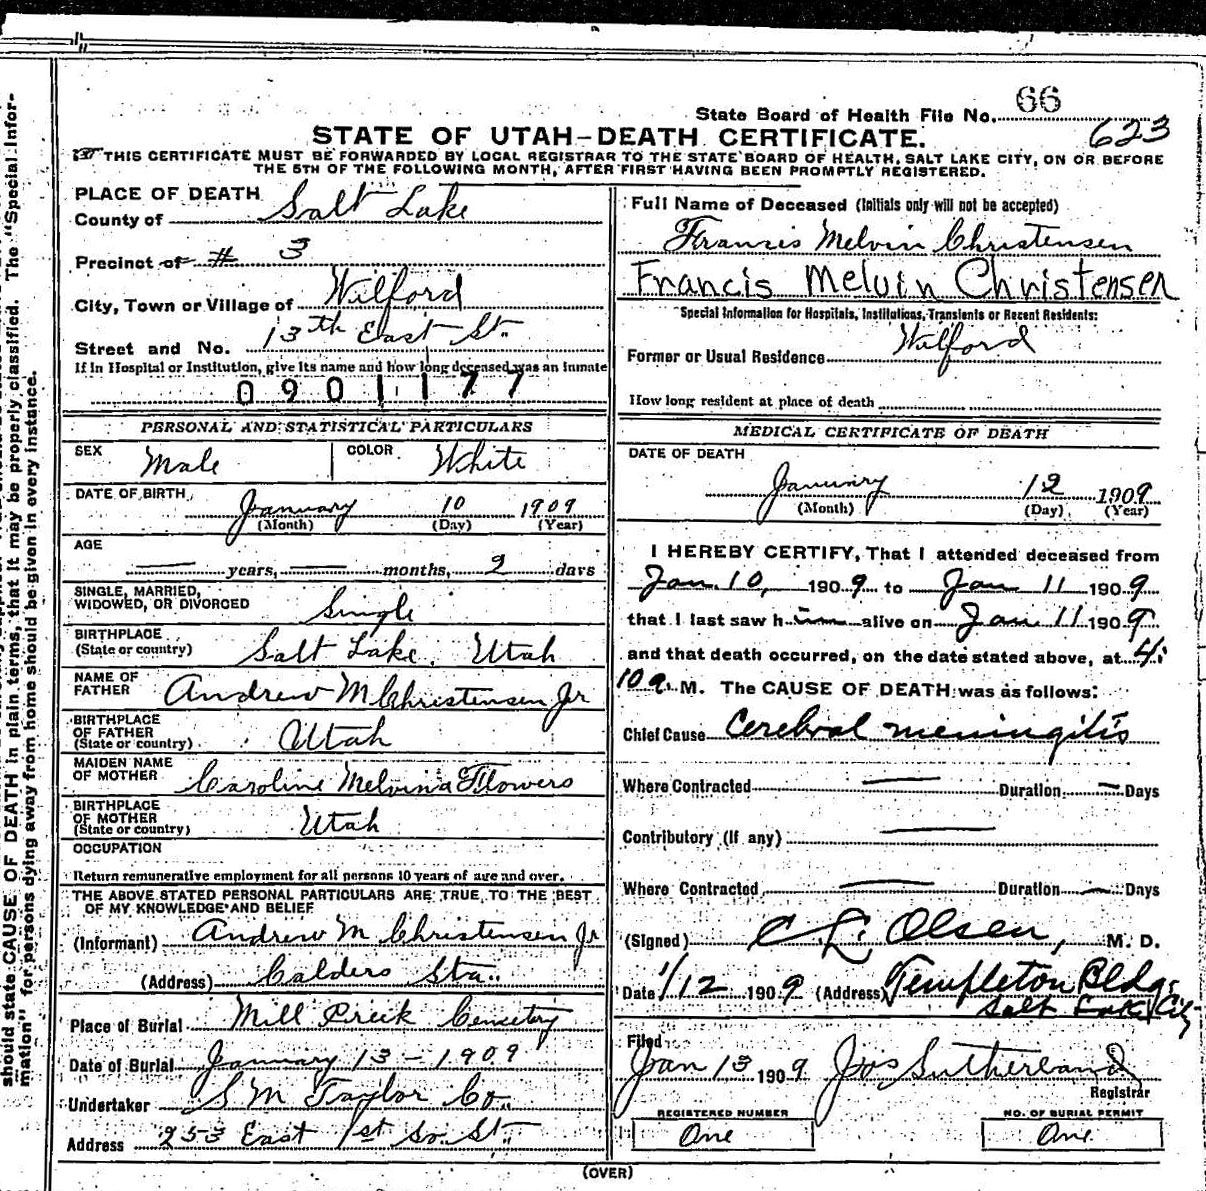 State Board of Health File No. 66
623
STATE OF UTAH—DEATH CERTIFICATE.
THIS CERTIFICATE MUST BE FORWARDED BY LOCAL REGISTRAR TO THE STATE BOARD OF HEALTH, SALT LAKE CITY, ON OR BEFORE
THE 5TH OF THE FOLLOWING MONTH, AFTER FIRST HAVING BEEN PROMPTLY REGISTERED.
PLACE OF DEATH
County of Salt Lake
Precinct of # 3
City, Town or Village of Wilford
Street and No. 13th East St.
If in Hospital or Institution, give its name and how long deceased was an inmate
0901177
PERSONAL AND STATISTICAL PARTICULARS
SEX Male COLOR White
DATE OF BIRTH January 10 1909
(Month) (Day) (Year)
AGE
— years, — months, 2 days
SINGLE, MARRIED,
WIDOWED, OR DIVORCED Single
BIRTHPLACE
(State or country) Salt Lake, Utah
NAME OF
FATHER Andrew M Christensen Jr
BIRTHPLACE
OF FATHER
(State or country) Utah
MAIDEN NAME
OF MOTHER Caroline Melvina Flowers
BIRTHPLACE
OF MOTHER
(State or country) Utah
OCCUPATION
Return remunerative employment for all persons 10 years of age and over.
THE ABOVE STATED PERSONAL PARTICULARS ARE TRUE TO THE BEST
OF MY KNOWLEDGE AND BELIEF
(Informant) Andrew M Christensen Jr
(Address) Calders Sta.
Place of Burial Mill Creek Cemetery
Date of Burial January 13 - 1909
Undertaker S M Taylor Co.
Address 253 East 1st So. St.
Full Name of Deceased (Initials only will not be accepted)
Francis Melvin Christensen
Francis Melvin Christensen
Special Information for Hospitals, Institutions, Transients or Recent Residents:
Former or Usual Residence Wilford
How long resident at place of death
MEDICAL CERTIFICATE OF DEATH
DATE OF DEATH
January 12 1909
(Month) (Day) (Year)
I HEREBY CERTIFY, That I attended deceased from
Jan. 10, 1909 to Jan 11 1909
that I last saw him alive on Jan 11 1909
and that death occurred, on the date stated above, at 4:
10 a. M. The CAUSE OF DEATH was as follows:
Chief Cause Cerebral meningitis
Where Contracted — Duration — Days
Contributory (If any) —
Where Contracted — Duration — Days
(Signed) C L Olsen, M. D.
Date 1/12 1909 (Address) Templeton Bldg
Salt Lake City
Filed
Jan 13 1909 Jos Sutherland
Registrar
REGISTERED NUMBER
One
NO. OF BURIAL PERMIT
One
(OVER)
should state CAUSE OF DEATH in plain terms, that it may be properly classified. The "Special Infor-
mation" for persons dying away from home should be given in every instance.